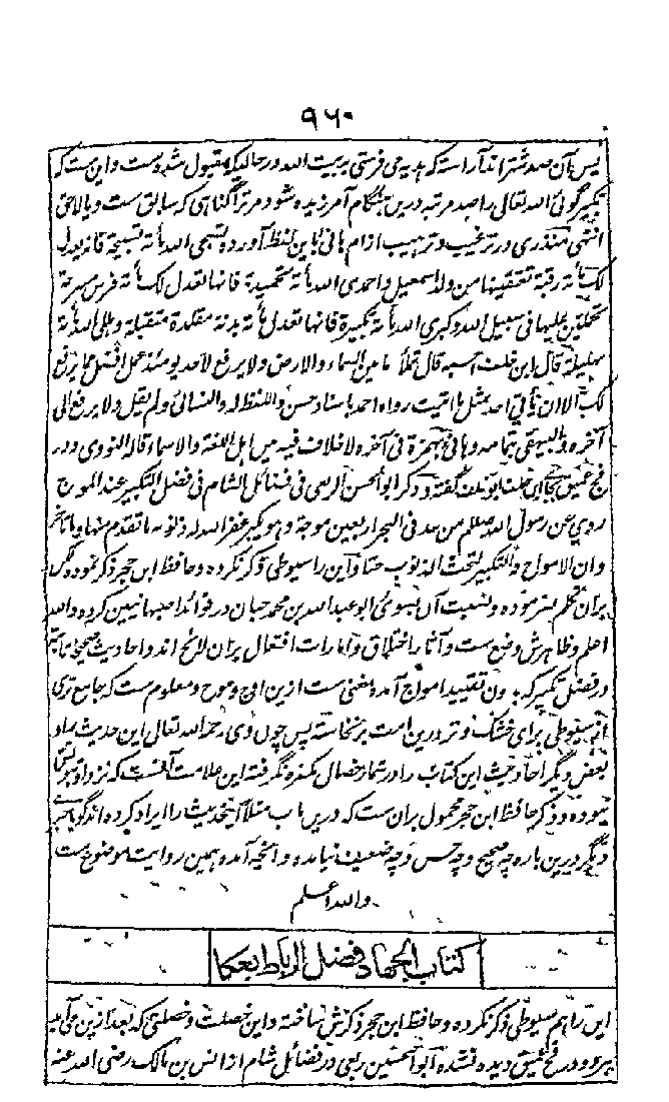 ۹۶۰
پس بآن صد شتر اند آراسته که هدیه می فرستی بر بیت الله در حالیکه مقبول شده ست و این ست که
تکبیر گوئی الله تعالی را صد مرتبه درین هنگام آمرزیده شود مر ترا گناهی که سابق ست و یا لاحق
انتهی منذری در ترغیب و ترهیب از ام هانی باین لفظ آورده تسبحی الله مأنه تسبیحة فانه یعدل
لک مأنه رقبة تعتقینها من ولد اسمعیل واحمدی الله مأنه تحمیدة فانها تعدل لک مأنه فرس مسرجة
تحملین علیها فی سبیل الله وکبری الله مأنه تکبیرة فانها تعدل مأنه بدنة مقلدة متقبلة وهللی الله مأنه
تهلیلة قال ابن خلف احسبه قال تملأ ما بین السماء والارض ولا یرفع لاحد یومئذ عمل افضل مما یرفع
لک الا ان یأتی احد بمثل ما اتیت رواه احمد باسناد حسن واللفظ له والنسائی ولم یقل ولا یرفع الی
آخره والبیهقی بتمامه وهانی بهمزة فی آخره لا خلاف فیه بین اهل اللغة والاسماء قاله النووی ودر
فج عمیق بجای ابن خلف ابو خلف گفته وذکر ابو الحسن الربعی فی فضائل الشام فی فضل التکبیر عند الموج
روی عن رسول الله صلعم من عد فی البحر اربعین موجة وهو یکبر غفر الله له ذنوبه ما تقدم منها وما تأخر
وان الامواج والتکبیر لتحت الذنوب حتا واین را سیوطی ذکر نکرده وحافظ ابن حجر ذکر نموده لکن
بران تکلم ننموده ونسبت آن بسوی ابو عبد الله بن محمد حبان در فوائد اصبهانیین کرده والله
اعلم وظاهرش وضع ست وآثار اختلاق وامارات افتعال بران لائح اند واحادیث صحیحه ثابته
در فضل تکبیر که بدون تقیید امواج آمده مغنی ست ازین اوج وموج ومعلوم ست که جامع تری
از سیوطی برای خشک وتر درین امت برنخاسته پس چون وی رحمه الله تعالی این حدیث را و
بعض دیگر احادیث این کتاب را در شمار خصال مکفره نگرفته این علامت آنست که نزد او ثبوتش
نبوده وذکر حافظ ابن حجر محمول بران ست که درین باب مثلا آن حدیث را ایراد کرده اند گو بجز
دیگر درین باره چه صحیح وچه حسن وچه ضعیف نیامده وآنچه آمده همین روایت موضوع ست
والله اعلم
کتاب الجهاد فضل الرباط بعکا
این را هم سیوطی ذکر نکرده وحافظ ابن حجر ذکرش ساخته واین خصلت وخصلتی که بعد ازین می آید
هر دو در فج عمیق دیده نشده ابو الحسین ربعی در فضائل شام از انس بن مالک رضی الله عنه